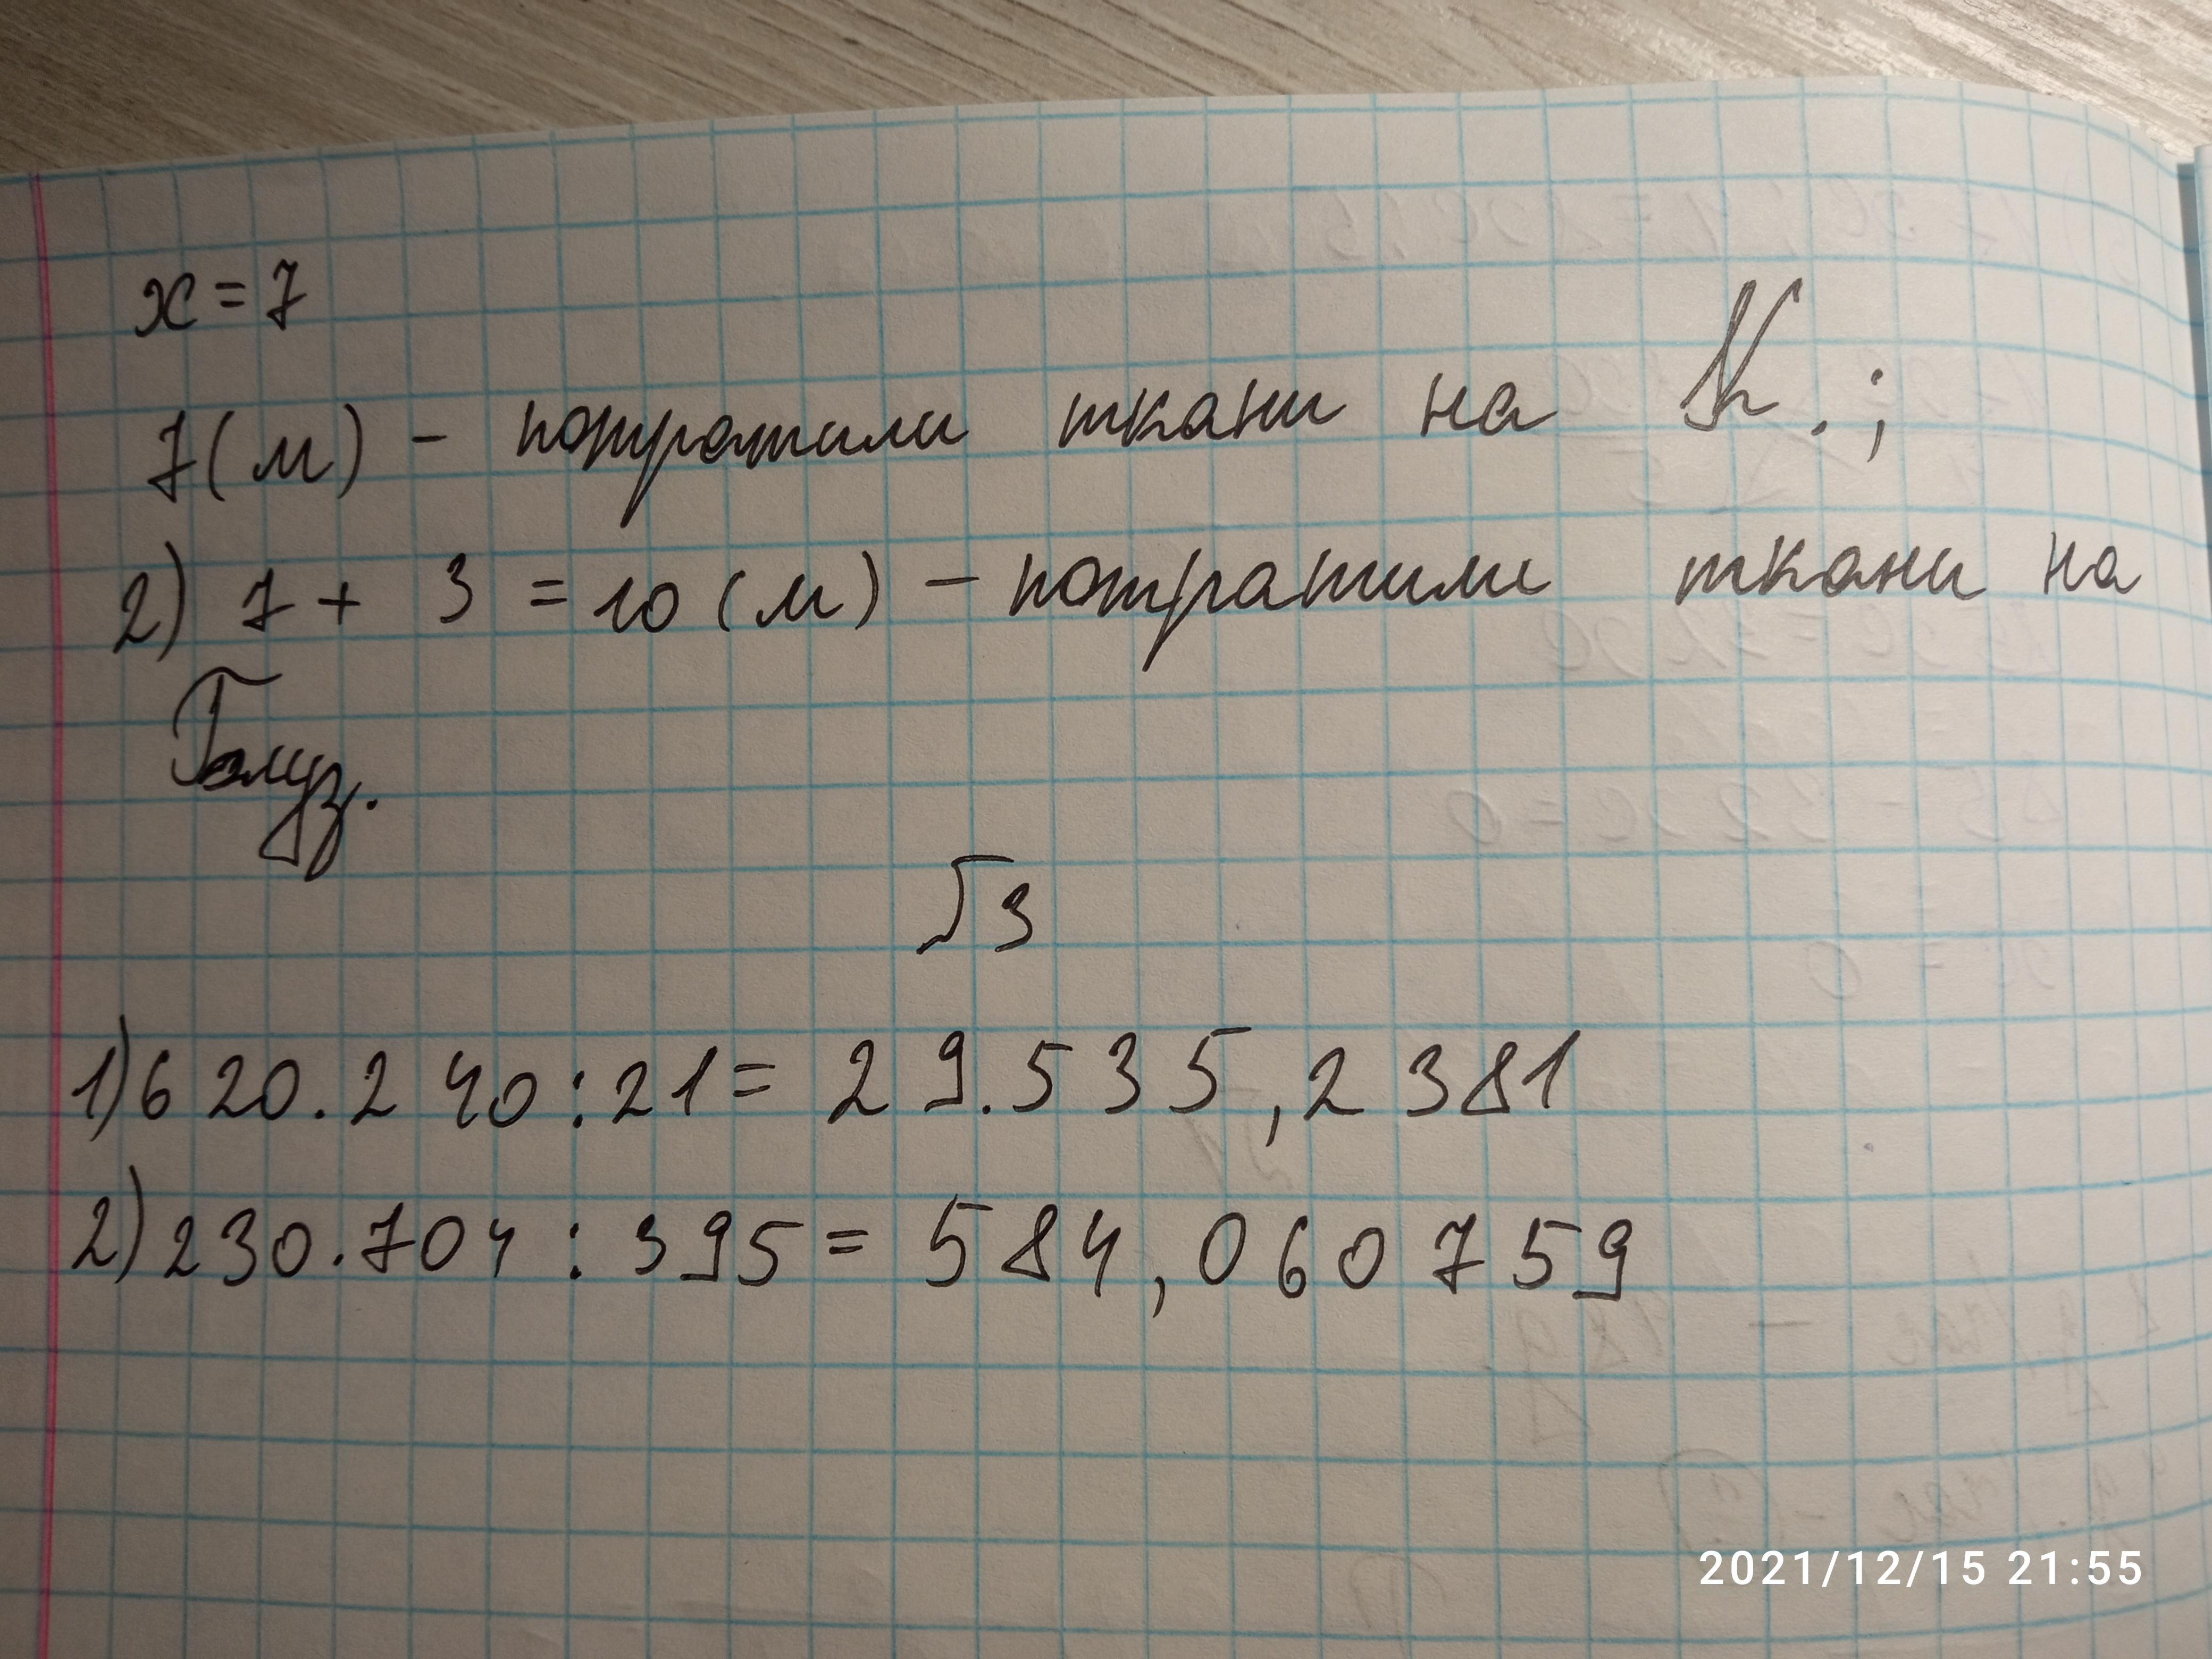 x = 7
7 (м) - потратили ткани на К. ;
2) 7 + 3 = 10 (м) - потратили ткани на
№3
1) 620.240 : 21 = 29.535,2381
2) 230.704 : 395 = 584,060759
2021/12/15 21:55